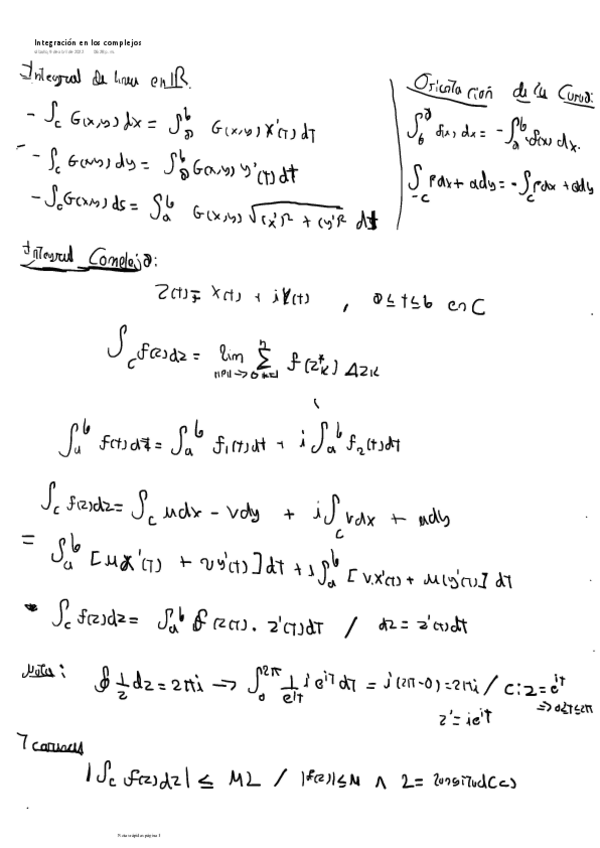 Integración en los complejos
Integral de linea en ℝ.
- ∫_C G(x,y) dx = ∫_a^b G(x,y) x'(t) dt
- ∫_C G(x,y) dy = ∫_a^b G(x,y) y'(t) dt
- ∫_C G(x,y) ds = ∫_a^b G(x,y) √((x')² + (y')²) dt
Orientación de la Curva:
∫_b^a f(x) dx = - ∫_a^b f(x) dx.
∫_{-C} Pdx + Qdy = - ∫_C Pdx + Qdy
Integral Compleja:
z(t) = x(t) + iy(t) , a ≤ t ≤ b en C
∫_C f(z)dz = lim_{||P|| → 0} Σ^n f(z*_k) Δzk
∫_a^b f(t)dt = ∫_a^b f₁(t)dt + i ∫_a^b f₂(t)dt
∫_C f(z)dz = ∫_C udx - vdy + i ∫_C vdx + udy
= ∫_a^b [u x'(t) + v y'(t)] dt + i ∫_a^b [v x'(t) + u y'(t)] dt
• ∫_C f(z)dz = ∫_a^b f(z(t)). z'(t)dt / dz = z'(t)dt
Nota: ∮ 1/z dz = 2πi → ∫_0^{2π} 1/e^{it} i e^{it} dt = i(2π-0) = 2πi / C: z = e^{it}
⇒ 0≤t≤2π
z' = ie^{it}
|∫_C f(z)dz| ≤ ML / |f(z)| ≤ M ∧ L = longitud(C)